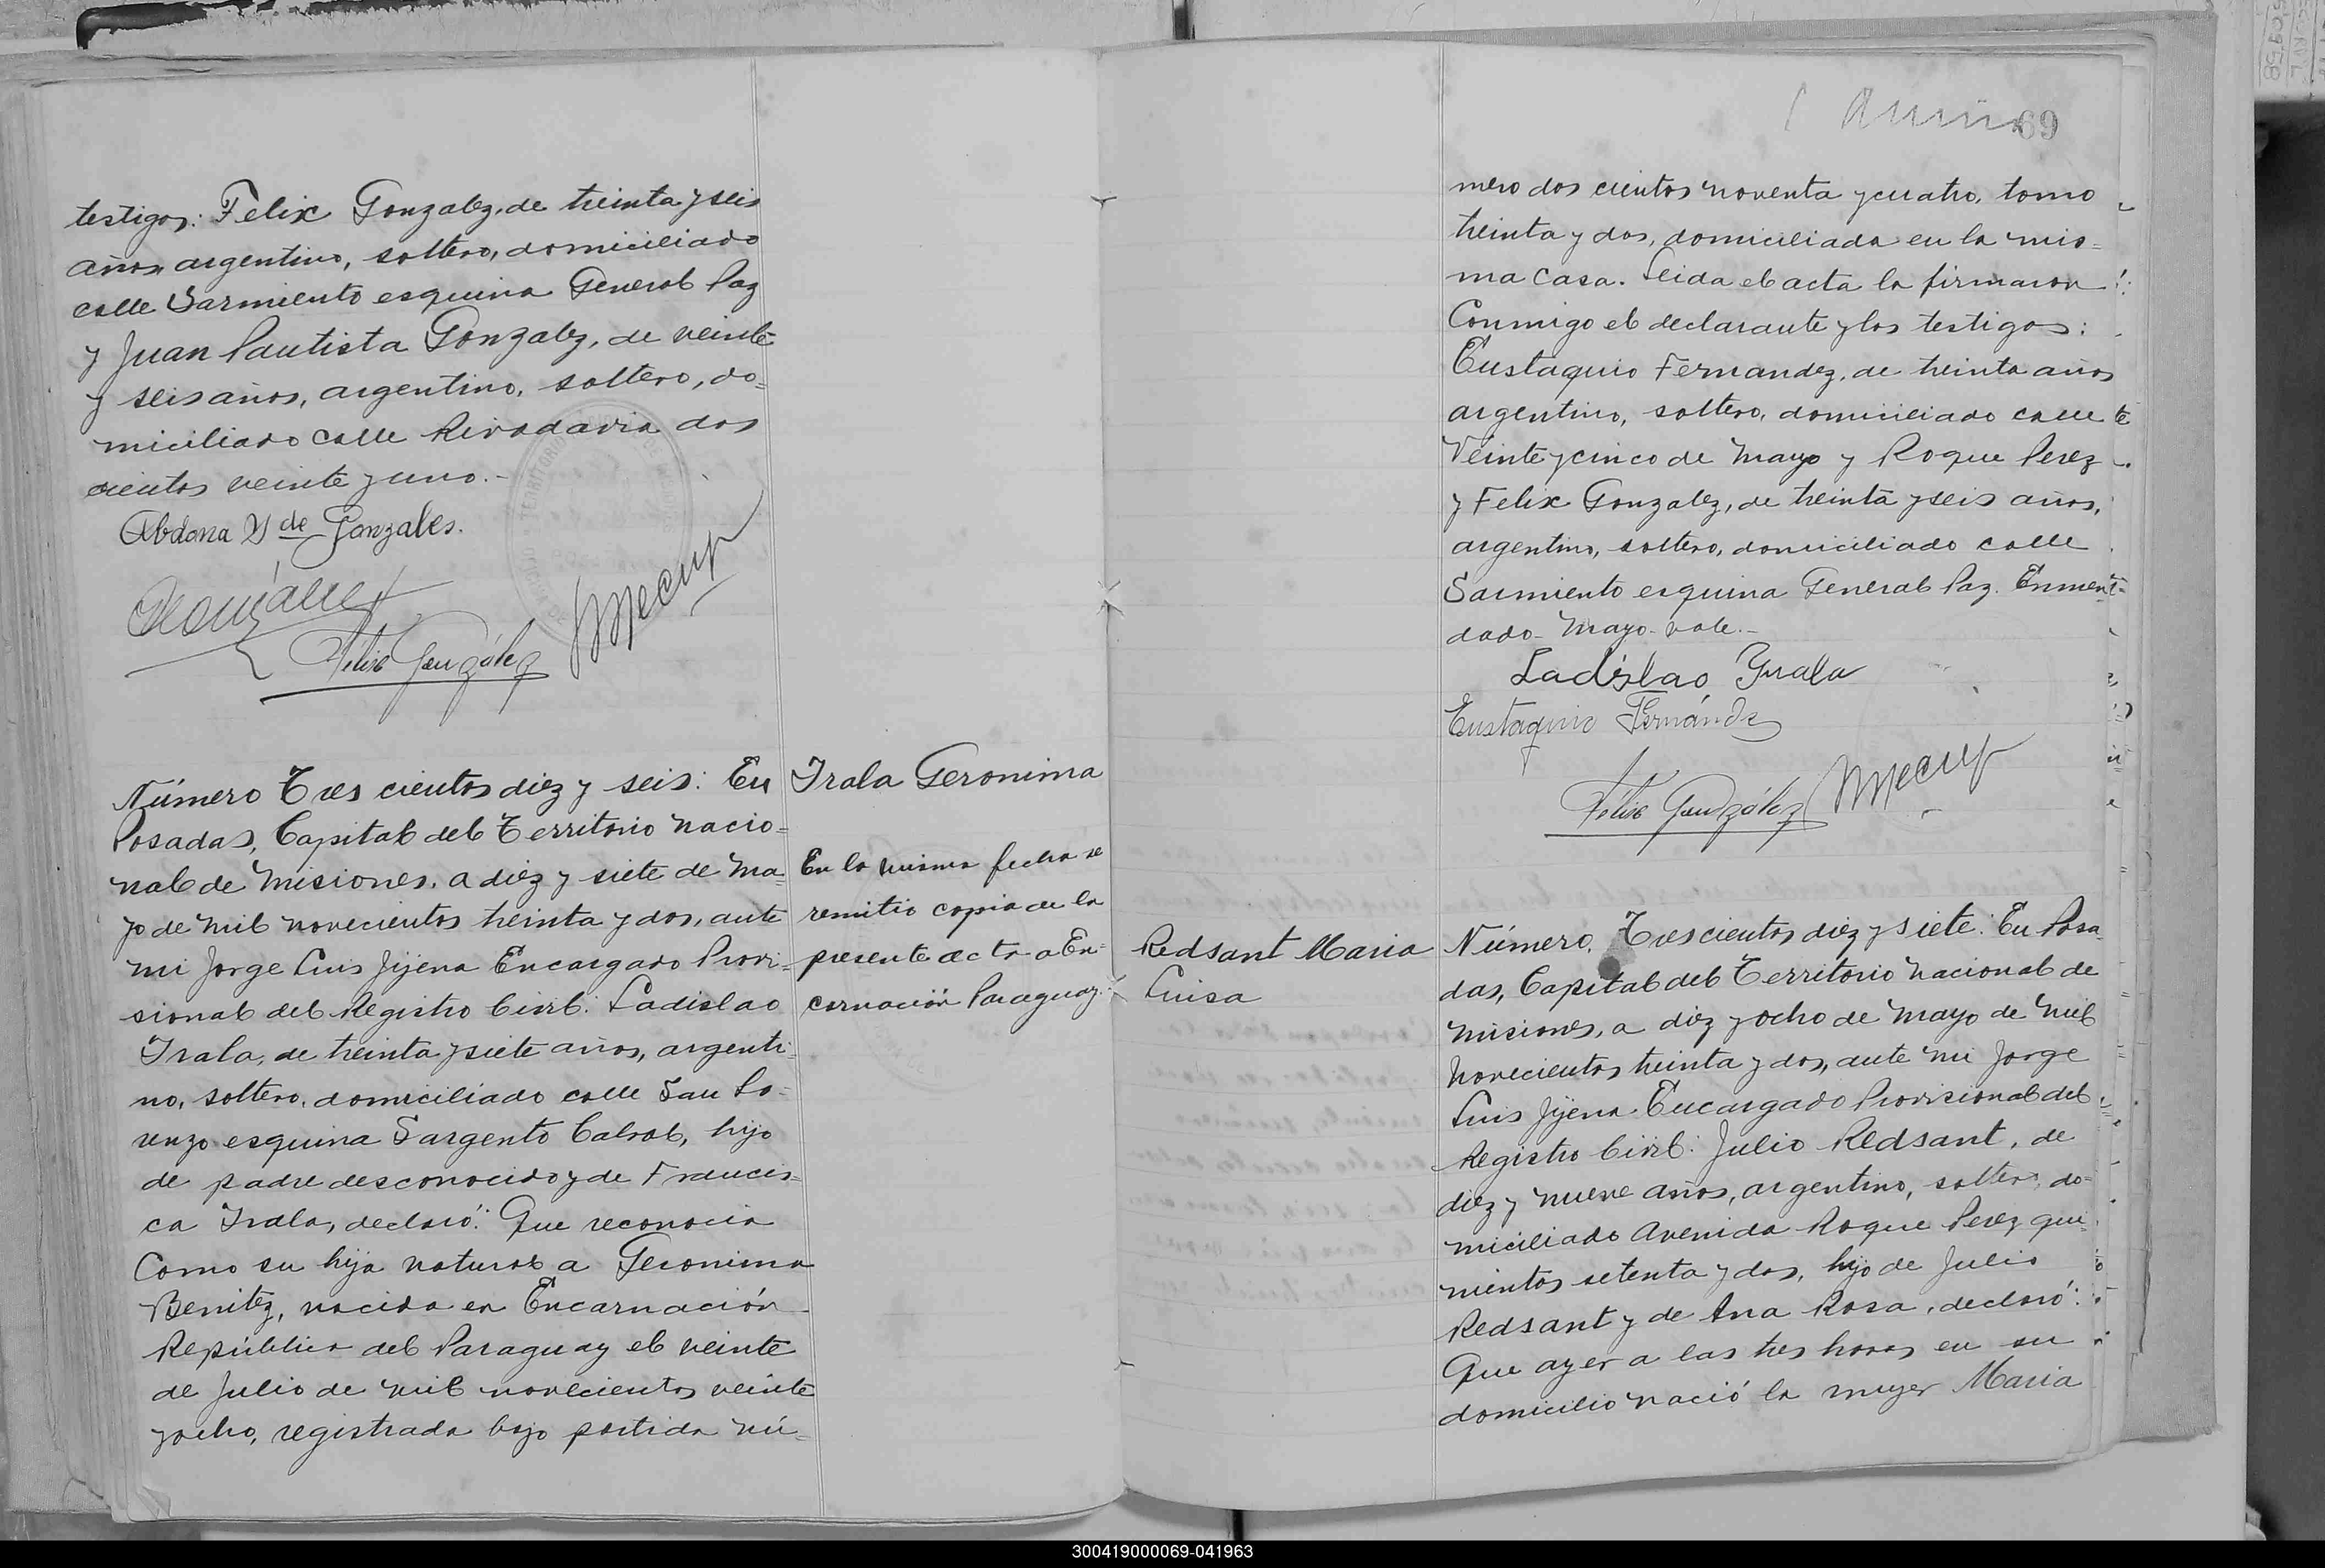 testigos: Felix Gonzalez, de treinta y seis
años, argentino, soltero, domiciliado
calle Sarmiento esquina General Paz
y Juan Bautista Gonzalez, de veinte
y seis años, argentino, soltero, do=
miciliado calle Rivadavia dos
cientos veinte y uno.-
Abdona de Gonzales.
Félix González
Número Tres cientos diez y seis: En
Posadas, Capital del Territorio Nacio=
nal de Misiones, a diez y siete de Ma=
yo de mil novecientos treinta y dos, ante
mi Jorge Luis Jijena Encargado Provi=
sional del Registro Civil: Ladislao
Irala, de treinta y siete años, argenti=
no, soltero, domiciliado calle San Lo=
renzo esquina Sargento Cabral, hijo
de padre desconocido y de Francis=
ca Irala, declaró: Que reconocia
Como su hija natural a Geronima
Benitez, nacida en Encarnación
República del Paraguay el veinte
de Julio de mil novecientos veinte
y ocho, registrada bajo partida nú=
Irala Geronima
En la misma fecha se
remitio copia de la
presente acta a En=
carnación Paraguay.
69
mero dos cientos noventa y cuatro, tomo
treinta y dos, domiciliada en la mis=
ma casa. Leida el acta la firmaron
Conmigo el declarante y los testigos:
Eustaquio Fernandez, de treinta años
argentino, soltero, domiciliado calle
Veinte y cinco de Mayo y Roque Perez
y Felix Gonzalez, de treinta y seis años,
argentino, soltero, domiciliado calle
Sarmiento esquina General Paz. Enmen=
dado - Mayo - vale.-
Ladislao Yrala
Eustaquio Fernández
Félix González
Redsant Maria
Luisa
Número, Trescientos diez y siete: En Posa=
das, Capital del Territorio Nacional de
Misiones, a diez y ocho de Mayo de mil
novecientos treinta y dos, ante mi Jorge
Luis Jijena Encargado Provisional del
Registro Civil: Julio Redsant, de
diez y nueve años, argentino, soltero, do=
miciliado Avenida Roque Perez qui=
nientos setenta y dos, hijo de Julio
Redsant y de Ana Rosa, declaró:
Que ayer a las tres horas en su
domicilio nació la mujer Maria
300419000069-041963